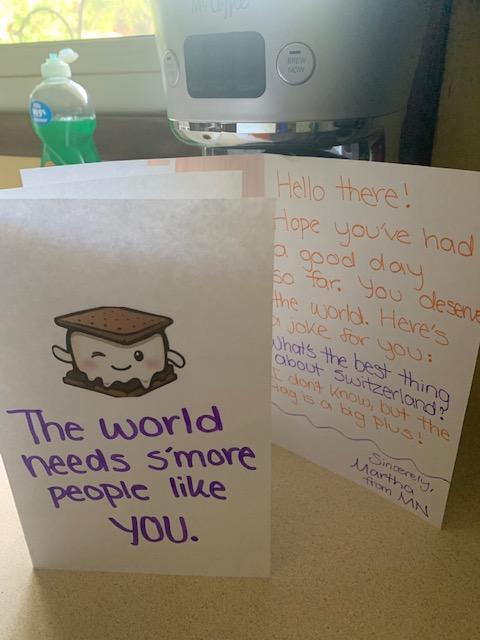 Mr. Coffee
BREW
NOW
Hello there!
Hope you've had
a good day
so far. You deserve
the world. Here's
a joke for you:
What's the best thing
about Switzerland?
I don't know, but the
flag is a big plus!
Sincerely,
Martha
from MN
The world
needs s'more
people like
YOU.